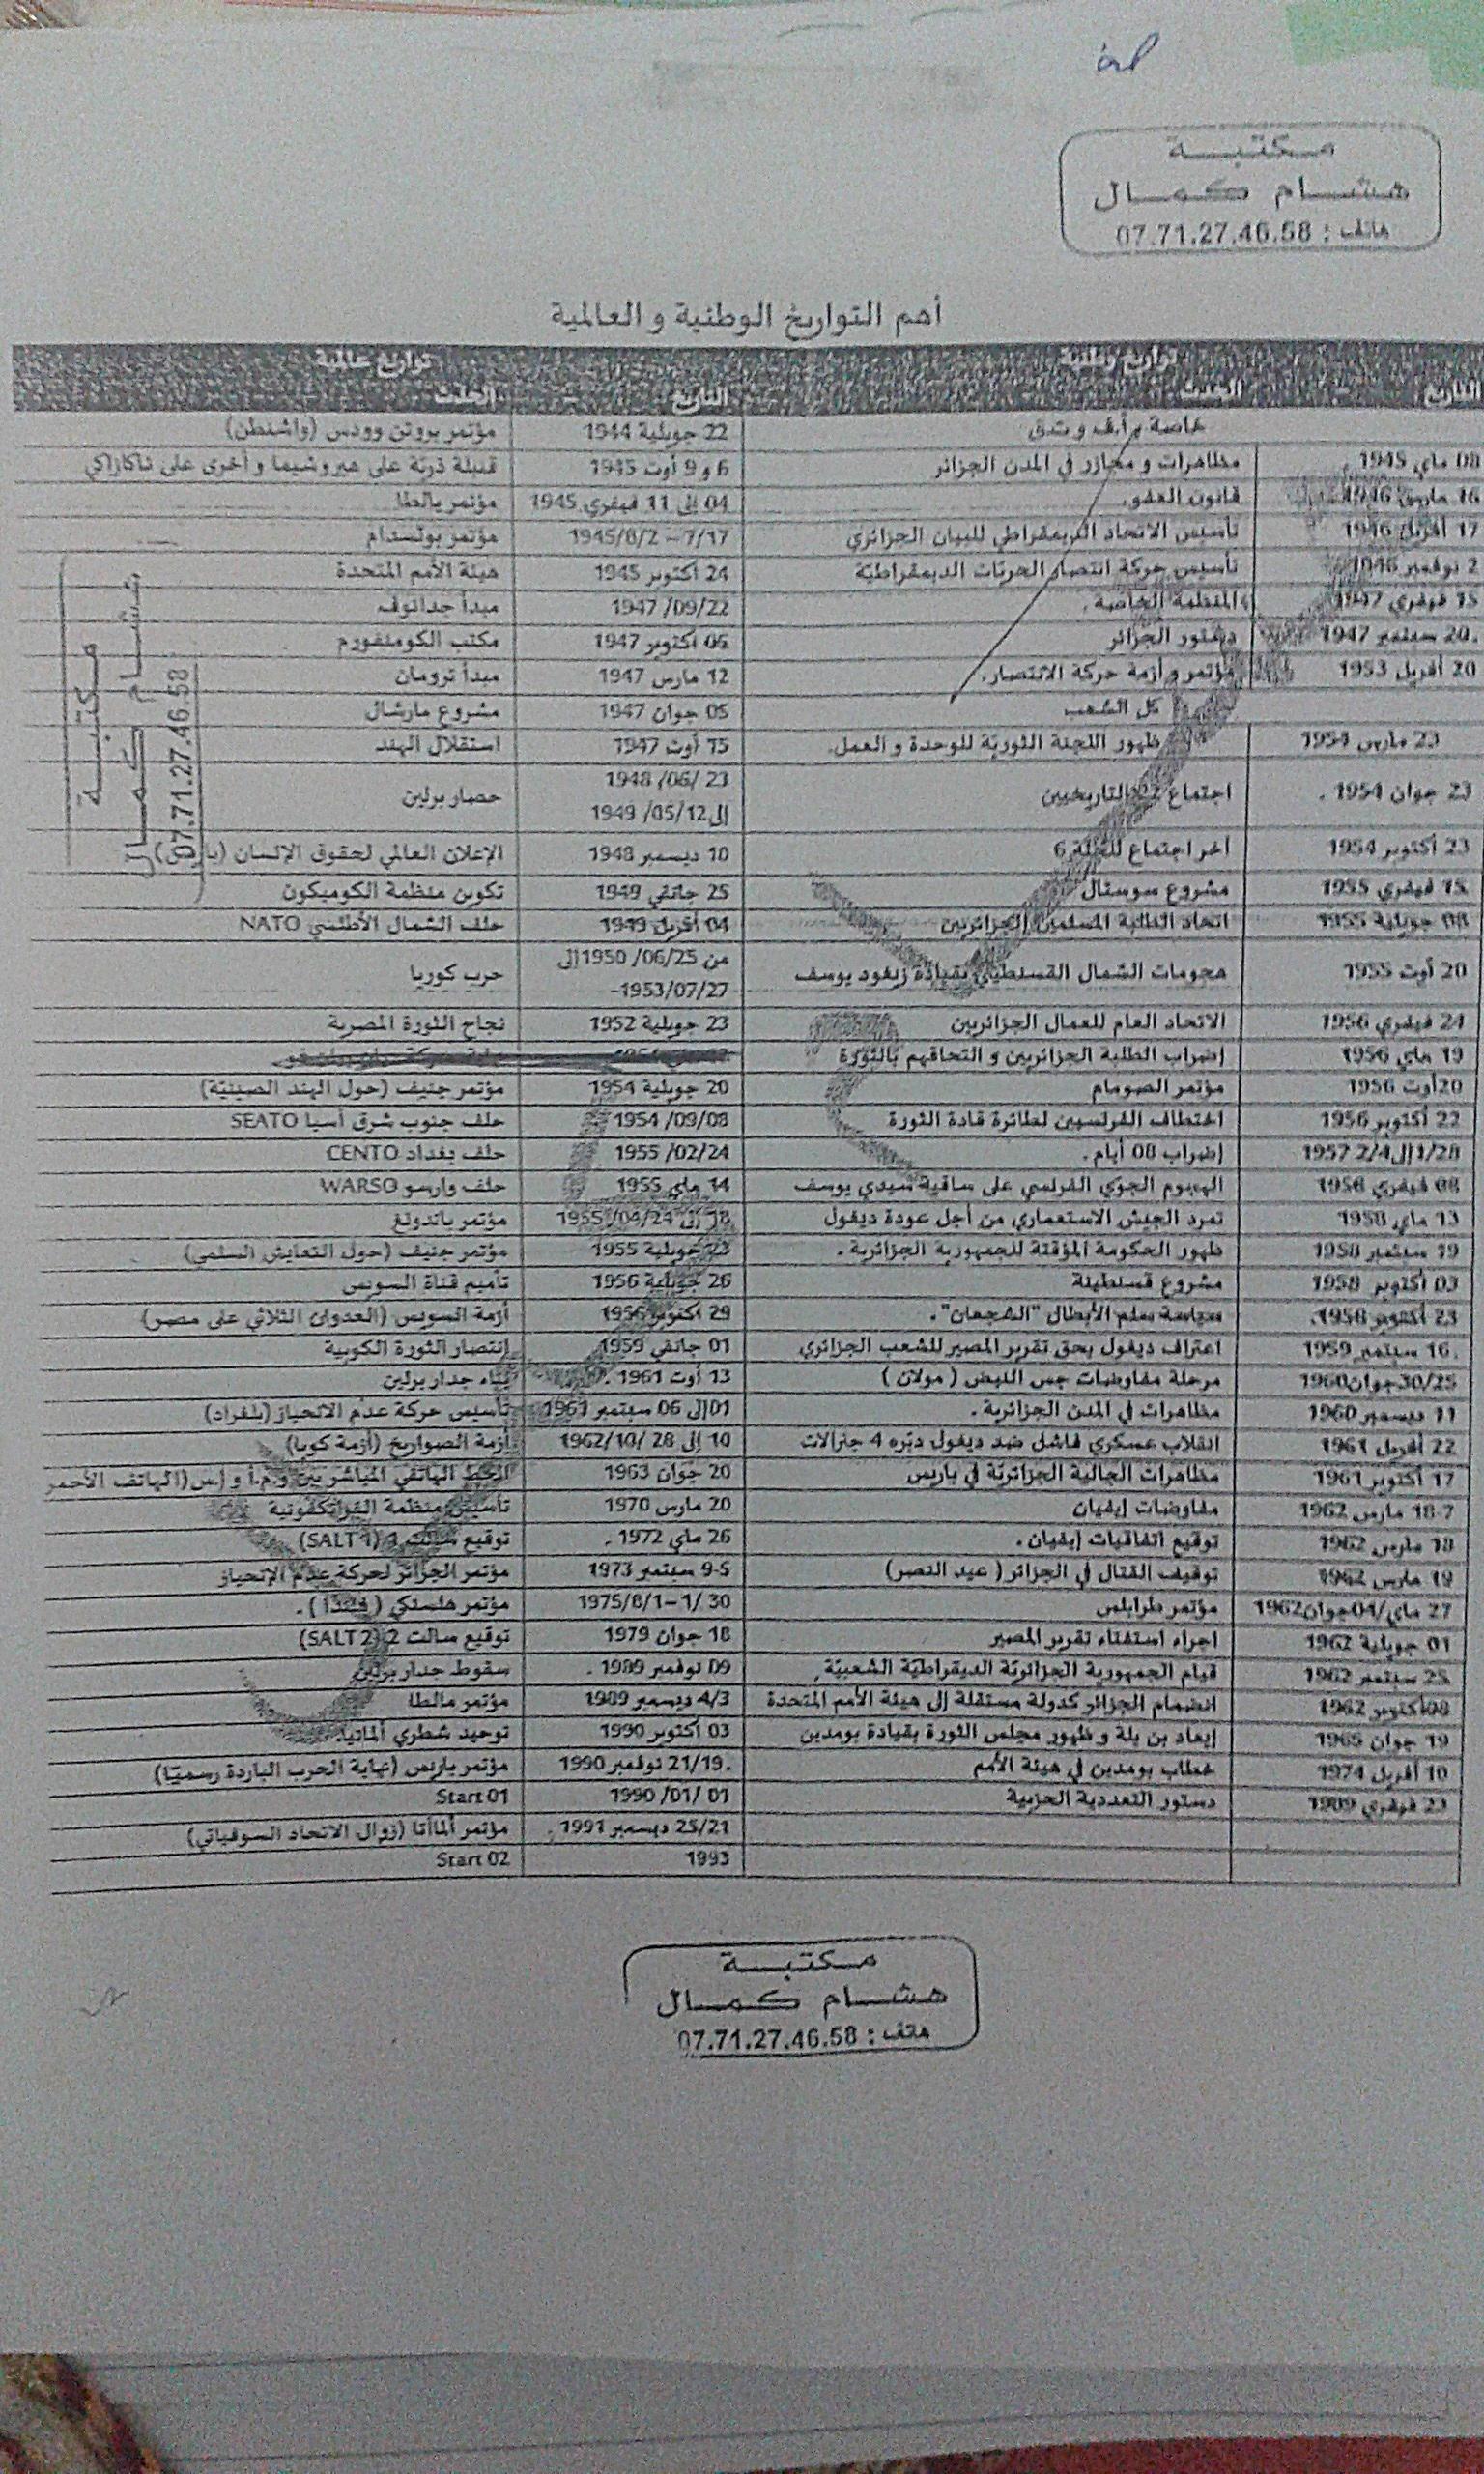 مكتبة
هشام كمال
هاتف : 07.71.27.46.58
أهم التواريخ الوطنية و العالمية
تواريخ وطنية تواريخ عالمية
التاريخ الحدث التاريخ الحدث
خاصة 22 جويلية 1944 مؤتمر بروتن وودس (واشنطن)
08 ماي 1945 مظاهرات و مجازر في المدن الجزائر 6 و 9 أوت 1945 قنبلة ذريّة على هيروشيما و أخرى على ناكازاكي
16 مارس 1946 قانون العفو. 04 إلى 11 فيفري 1945 مؤتمر يالطا
17 أفريل 1946 تأسيس الاتحاد الديمقراطي للبيان الجزائري 7/17 – 1945/8/2 مؤتمر بوتسدام
2 نوفمبر 1946 تأسيس حركة انتصار الحريّات الديمقراطيّة 24 أكتوبر 1945 هيئة الأمم المتحدة
15 فيفري 1947 المنظمة الخاصة. 1947 /09/22 مبدأ جدانوف
20 سبتمبر 1947 دستور الجزائر 05 أكتوبر 1947 مكتب الكومنفورم
20 أفريل 1953 مؤتمر و أزمة حركة الانتصار. 12 مارس 1947 مبدأ ترومان
كل الشعب 05 جوان 1947 مشروع مارشال
23 مارس 1954 ظهور اللجنة الثوريّة للوحدة و العمل. 15 أوت 1947 استقلال الهند
23 جوان 1954 . اجتماع 22 التاريخيين 1948 /06/ 23 إلى 1949 /05/12 حصار برلين
23 أكتوبر 1954 أخر اجتماع للجنة 6 10 ديسمبر 1948 الإعلان العالمي لحقوق الإنسان (باريس)
15 فيفري 1955 مشروع سوستال 25 جانفي 1949 تكوين منظمة الكوميكون
08 جويلية 1955 اتحاد الطلبة المسلمين الجزائريين 04 أفريل 1949 حلف الشمال الأطلسي NATO
20 أوت 1955 هجومات الشمال القسنطيني بقيادة زيغود يوسف من 1950 /06/25 إلى 1953/07/27- حرب كوريا
24 فيفري 1956 الاتحاد العام للعمال الجزائريين 23 جويلية 1952 نجاح الثورة المصرية
19 ماي 1956 إضراب الطلبة الجزائريين و التحاقهم بالثورة
20أوت 1956 مؤتمر الصومام 20 جويلية 1954 مؤتمر جنيف (حول الهند الصينيّة)
22 أكتوبر 1956 اختطاف الفرنسيين لطائرة قادة الثورة 1954 /09/08 حلف جنوب شرق آسيا SEATO
1/28إلى2/4 1957 إضراب 08 أيام . 1955 /02/24 حلف بغداد CENTO
08 فيفري 1958 الهجوم الجوّي الفرنسي على ساقية سيدي يوسف 14 ماي 1955 حلف وارسو WARSO
13 ماي 1958 تمرد الجيش الاستعماري من أجل عودة ديغول 18 إلى 1955 /04/24 مؤتمر باندونغ
19 سبتمبر 1958 ظهور الحكومة المؤقتة للجمهورية الجزائرية . 23 جويلية 1955 مؤتمر جنيف (حول التعايش السلمي)
03 أكتوبر 1958 مشروع قسنطينة 26 جويلية 1956 تأميم قناة السويس
23 أكتوبر 1958. سياسة سلم الأبطال "الشجعان". 29 أكتوبر 1956 أزمة السويس (العدوان الثلاثي على مصر)
16 سبتمبر 1959 اعتراف ديغول بحق تقرير المصير للشعب الجزائري 01 جانفي 1959 إنتصار الثورة الكوبية
30/25جوان1960 مرحلة مفاوضات جس النبض ( مولان ) 13 أوت 1961 . بناء جدار برلين
11 ديسمبر 1960 مظاهرات في المدن الجزائرية . 01إلى 06 سبتمبر 1961 تأسيس حركة عدم الانحياز (بلغراد)
22 أفريل 1961 انقلاب عسكري فاشل ضد ديغول دبّره 4 جنرالات 10 إلى 28 /1962/10 أزمة الصواريخ (أزمة كوبا)
17 أكتوبر 1961 مظاهرات الجالية الجزائريّة في باريس 20 جوان 1963 الخط الهاتفي المباشر بين و.م.أ و إ.س (الهاتف الأحمر
18-7 مارس 1962 مفاوضات إيفيان 20 مارس 1970 تأسيس منظمة الفرانكفونية
18 مارس 1962 توقيع اتفاقيات إيفيان . 26 ماي 1972 . توقيع سالت 1 (SALT 1)
19 مارس 1962 توقيف القتال في الجزائر ( عيد النصر) 9-5 سبتمبر 1973 مؤتمر الجزائر لحركة عدم الإنحياز
27 ماي/04جوان1962 مؤتمر طرابلس 30 /1–1975/8/1 مؤتمر هلسنكي ( فنلندا ) .
01 جويلية 1962 اجراء استفتاء تقرير المصير 18 جوان 1979 توقيع سالت 2 (SALT 2)
25 سبتمبر 1962 قيام الجمهورية الجزائريّة الديمقراطيّة الشعبيّة 09 نوفمبر 1989 . سقوط جدار برلين
08أكتوبر 1962 انضمام الجزائر كدولة مستقلة إلى هيئة الأمم المتحدة 4/3 ديسمبر 1989 مؤتمر مالطا
19 جوان 1965 إبعاد بن بلة و ظهور مجلس الثورة بقيادة بومدين 03 أكتوبر 1990 توحيد شطري ألمانيا.
10 أفريل 1974 خطاب بومدين في هيئة الأمم 21/19 نوفمبر 1990 مؤتمر باريس (نهاية الحرب الباردة رسميّا)
23 فيفري 1989 دستور التعددية الحزبية 01 /01/ 1990 Start 01
25/21 ديسمبر 1991 . مؤتمر ألماآتا (زوال الاتحاد السوفياتي)
1993 Start 02
مكتبة
هشام كمال
07.71.27.46.58
مكتبة
هشام كمال
هاتف : 07.71.27.46.58